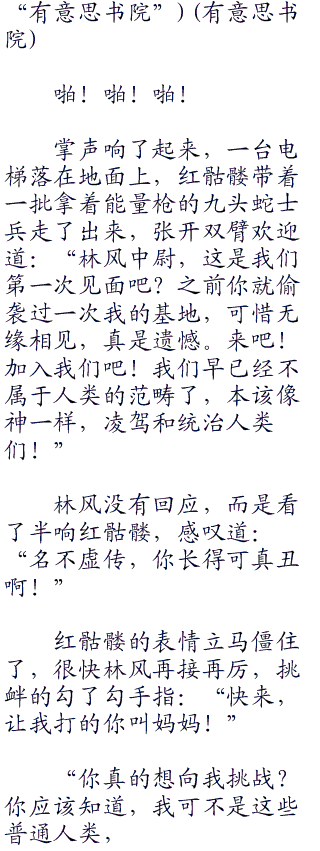 “有意思书院”)(有意思书
院)
啪！啪！啪！
掌声响了起来，一台电
梯落在地面上，红骷髅带着
一批拿着能量枪的九头蛇士
兵走了出来，张开双臂欢迎
道：“林风中尉，这是我们
第一次见面吧？之前你就偷
袭过一次我的基地，可惜无
缘相见，真是遗憾。来吧！
加入我们吧！我们早已经不
属于人类的范畴了，本该像
神一样，凌驾和统治人类
们！”
林风没有回应，而是看
了半响红骷髅，感叹道：
“名不虚传，你长得可真丑
啊！”
红骷髅的表情立马僵住
了，很快林风再接再厉，挑
衅的勾了勾手指：“快来，
让我打的你叫妈妈！”
“你真的想向我挑战？
你应该知道，我可不是这些
普通人类，